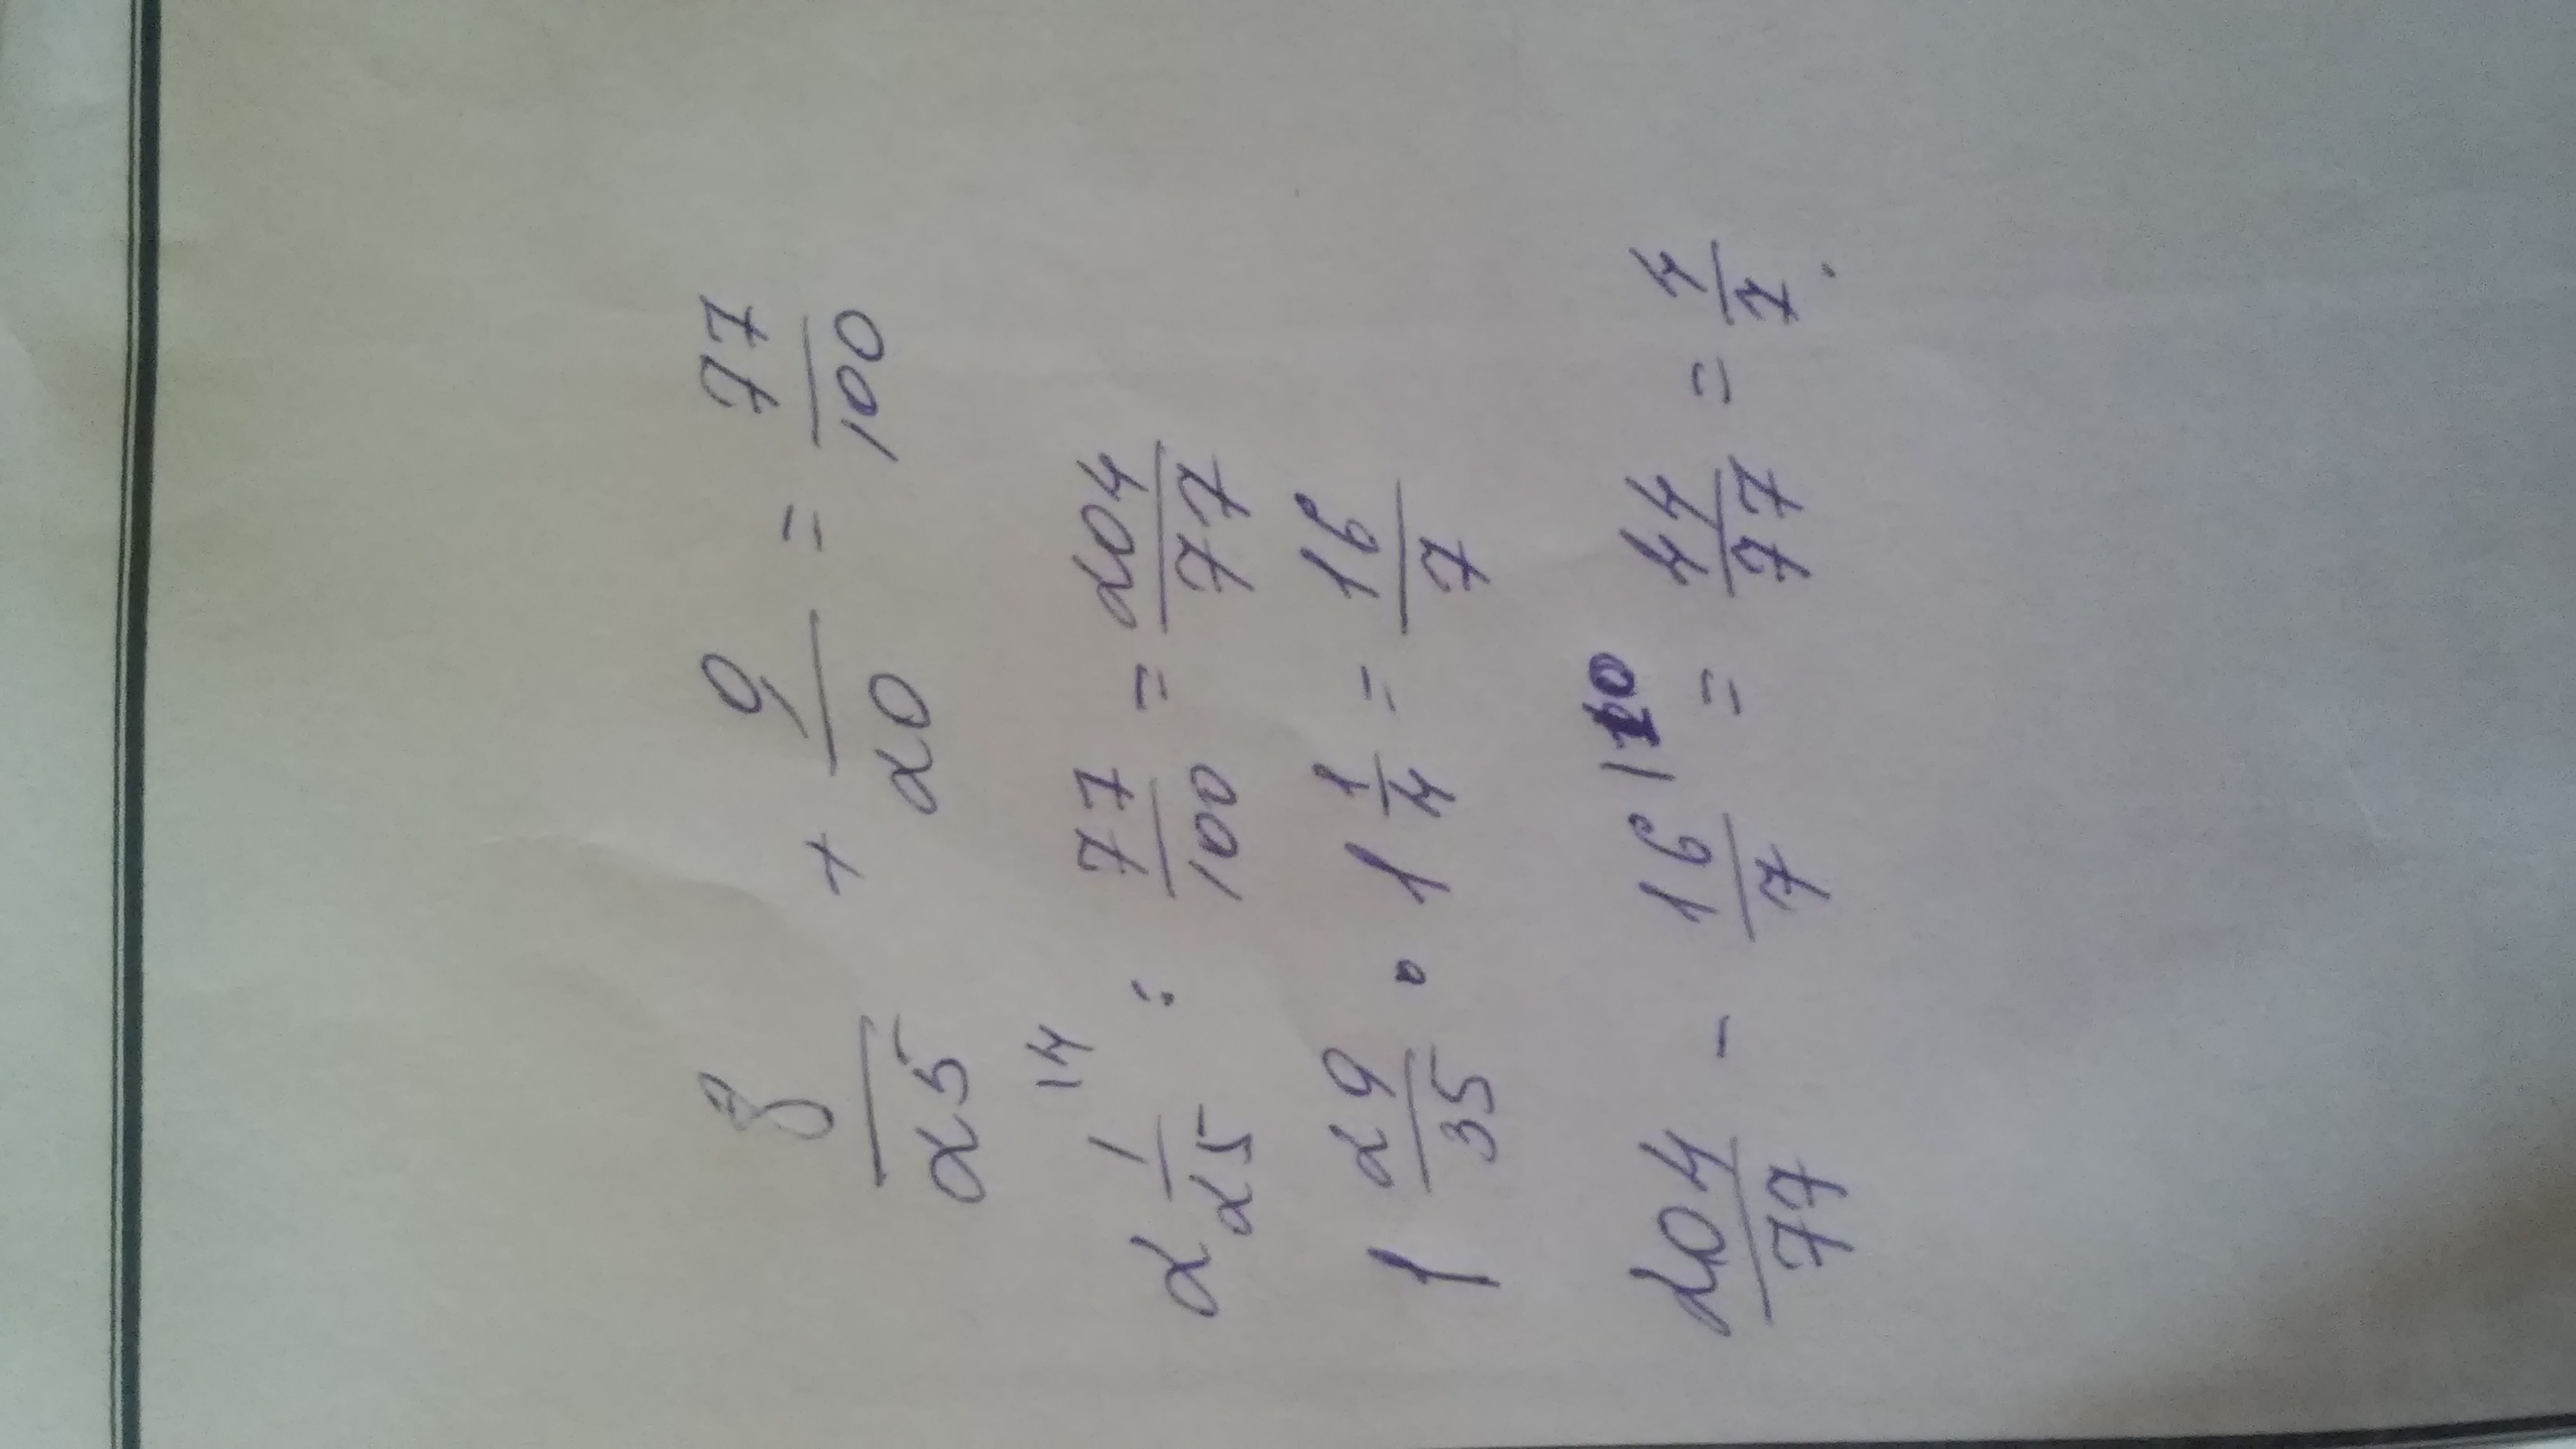 8/25 + 9/20 = 77/100
14
2 1/25 : 77/100 = 204/77
1 29/35 · 1 1/4 = 16/7
204/77 - 16/7 |110 = 44/77 = 4/7.